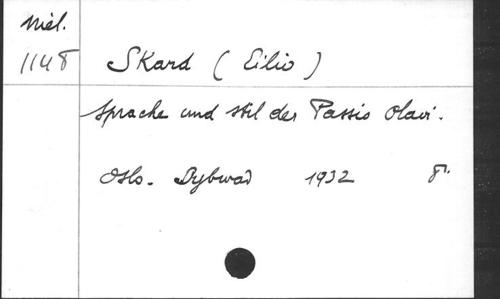 Niel.
1148 Skard ( Eilio )
Sprache und stil der Passio Olavi.
Oslo. Dybwad 1932 8°.